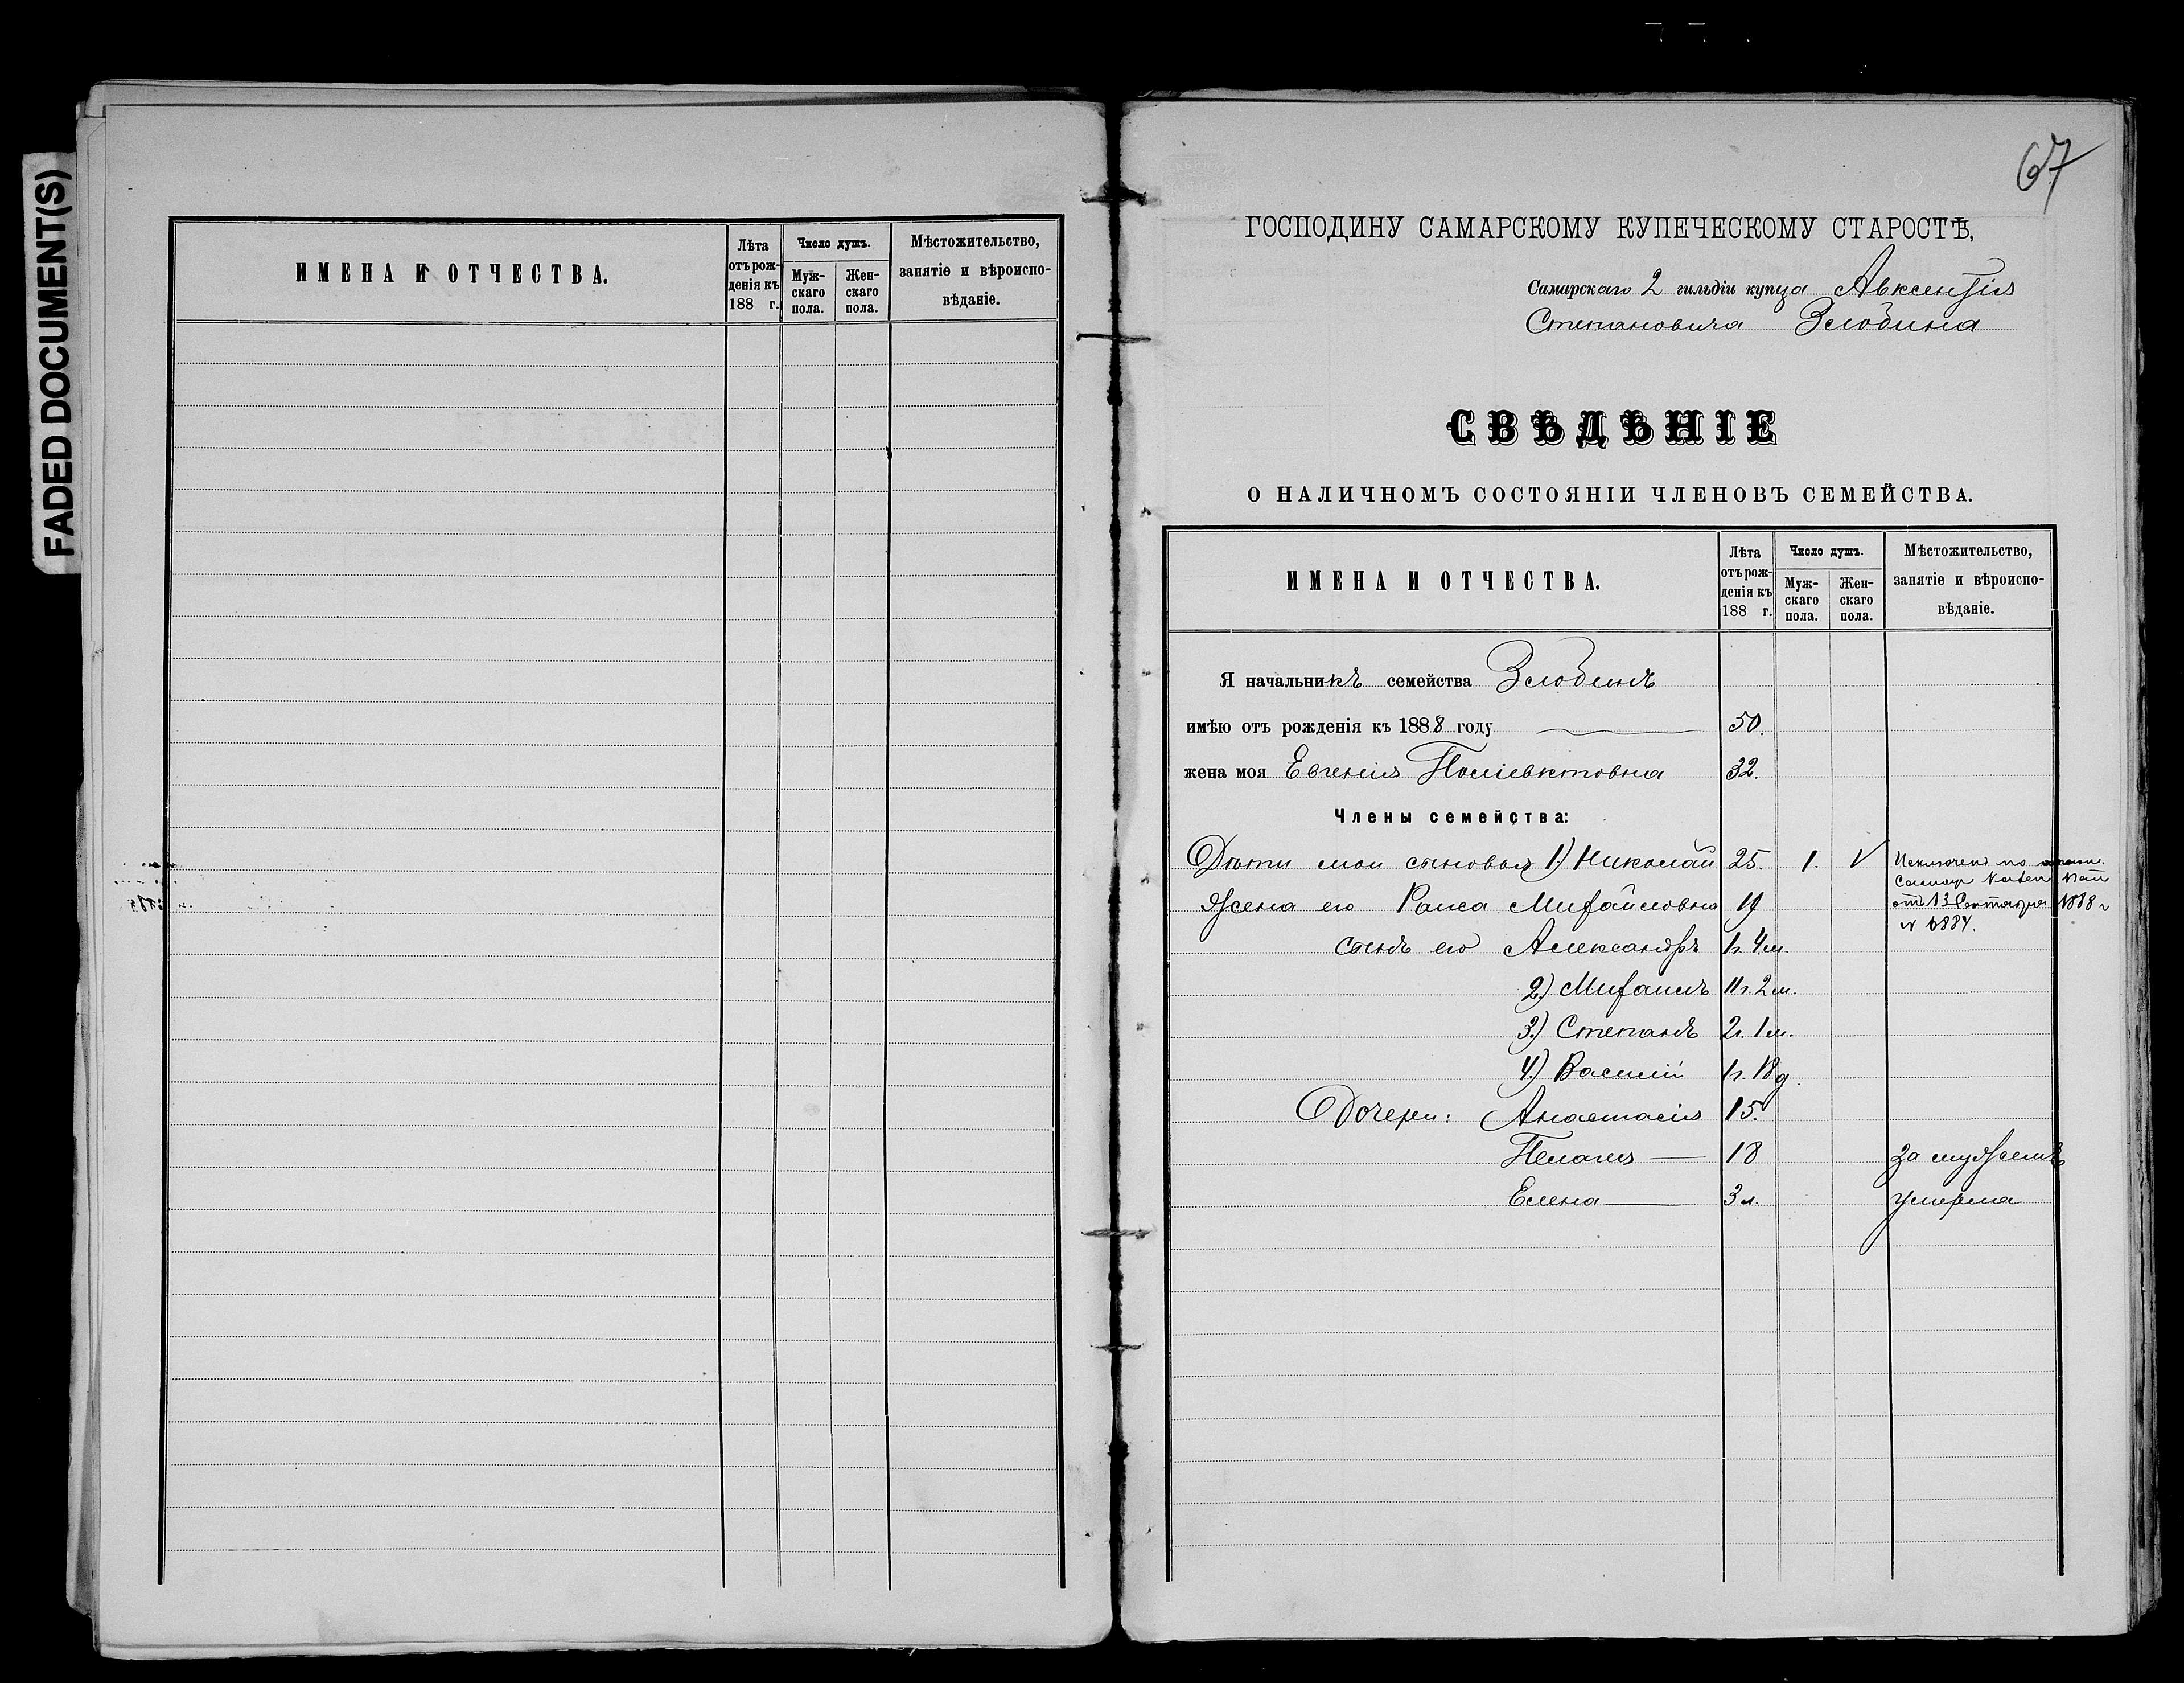 FADED DOCUMENT(S)
ИМЕНА И ОТЧЕСТВА.
Лѣта отъ рожденія къ 188 г.
Число душъ.
Мужскаго пола.
Женскаго пола.
Мѣстожительство, занятіе и вѣроисповѣданіе.
67
ГОСПОДИНУ САМАРСКОМУ КУПЕЧЕСКОМУ СТАРОСТѢ,
Самарскаго 2 гильдіи купца Авксентія
Степановича Злобина
СВѢДѢНІЕ
О НАЛИЧНОМЪ СОСТОЯНІИ ЧЛЕНОВЪ СЕМЕЙСТВА.
ИМЕНА И ОТЧЕСТВА.
Лѣта отъ рожденія къ 188 г.
Число душъ.
Мужскаго пола.
Женскаго пола.
Мѣстожительство, занятіе и вѣроисповѣданіе.
Я начальникъ семейства Злобинъ
имѣю отъ рожденія къ 1888 году 50.
жена моя Евгенія Поліевктовна 32.
Члены семейства:
Дѣти мои сыновья 1) Николай 25. 1. V Исключенъ по
Самар. Казен. Пал
Жена его Раиса Михайловна 19 отъ 13 Сентября 1888 г
№ 6884.
сынъ его Александръ 1 г. 4 м.
2) Михаилъ 11 г. 2 м.
3) Степанъ 2 г. 1 м.
4) Василій 1 г. 18 д.
Дочери: Анастасія 15.
Пелагея — 18 за мужемъ
Елена — 3 л. умерла